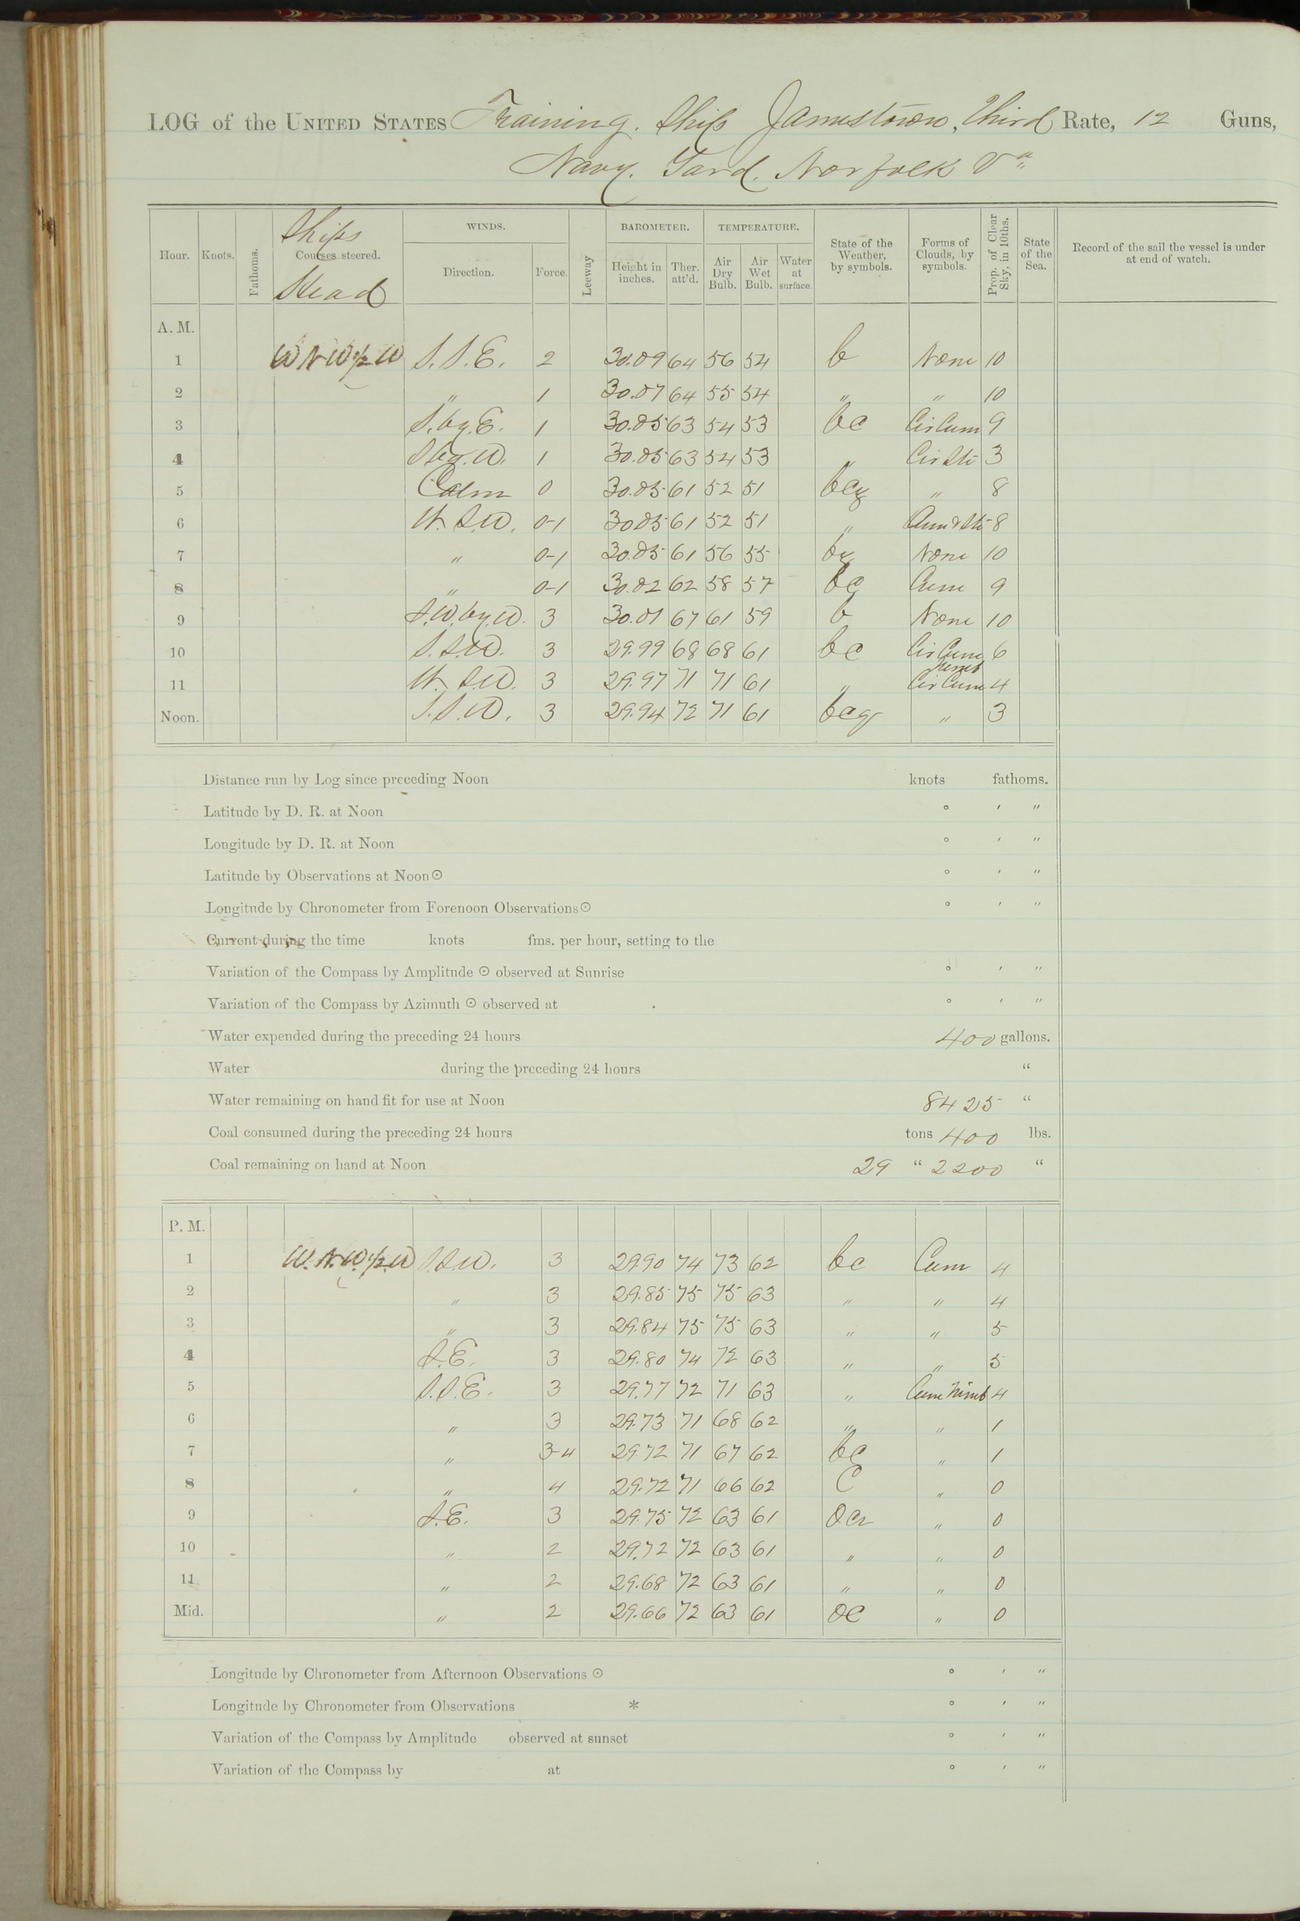 LOG of the UNITED STATES Training Ship Jamestown, Third Rate, 12 Guns,
Navy Yard, Norfolk Va
Hour. Knots. Fathoms. Ships Courses steered. Head WINDS. Direction. Force. Leeway BAROMETER. Height in inches. Ther. att'd. TEMPERATURE. Air Dry Bulb. Air Wet Bulb. Water at surface. State of the Weather, by symbols. Forms of Clouds, by symbols. Prop. of Clear Sky, in 10ths. State of the Sea. Record of the sail the vessel is under at end of watch.
A. M.
1 WNW½W S.S.E. 2 30.09 64 56 54 b None 10
2 " 1 30.07 64 55 54 " " 10
3 S.by.E. 1 30.05 63 54 53 bc Cir Cum 9
4 S.by.W. 1 30.05 63 54 53 " Cir Str 3
5 Calm 0 30.05 61 52 51 " 8
6 W.S.W. 0-1 30.05 61 52 51 " Cum & Str 8
7 " 0-1 30.05 61 56 55 None 10
8 " 0-1 30.02 62 58 57 Cum 9
9 S.W.by.W. 3 30.01 67 61 59 b None 10
10 S.S.W. 3 29.99 68 68 61 bc Cir Cum 6
11 W.S.W. 3 29.97 71 71 61 " Nimb Cir Cum 4
Noon. S.S.W. 3 29.94 72 71 61 bcq " 3
Distance run by Log since preceding Noon knots fathoms.
Latitude by D. R. at Noon ° ′ ″
Longitude by D. R. at Noon ° ′ ″
Latitude by Observations at Noon ⊙ ° ′ ″
Longitude by Chronometer from Forenoon Observations ⊙ ° ′ ″
Current during the time knots fms. per hour, setting to the
Variation of the Compass by Amplitude ⊙ observed at Sunrise ° ′ ″
Variation of the Compass by Azimuth ⊙ observed at ° ′ ″
Water expended during the preceding 24 hours 400 gallons.
Water during the preceding 24 hours "
Water remaining on hand fit for use at Noon 8425 "
Coal consumed during the preceding 24 hours tons 400 lbs.
Coal remaining on hand at Noon 29 " 2200 "
P. M.
1 W.N.W.½.W S.S.W. 3 29.90 74 73 62 bc Cum 4
2 " 3 29.85 75 75 63 " " 4
3 " 3 29.84 75 75 63 " " 5
4 S.E. 3 29.80 74 72 63 " " 5
5 S.S.E. 3 29.77 72 71 63 " Cum Nimb 4
6 " 3 29.73 71 68 62 " " 1
7 " 3-4 29.72 71 67 62 bc " 1
8 " 4 29.72 71 66 62 c " 0
9 S.E. 3 29.75 72 63 61 ocr " 0
10 " 2 29.72 72 63 61 " " 0
11 " 2 29.68 72 63 61 " " 0
Mid. " 2 29.66 72 63 61 oc " 0
Longitude by Chronometer from Afternoon Observations ⊙ ° ′ ″
Longitude by Chronometer from Observations * ° ′ ″
Variation of the Compass by Amplitude observed at sunset ° ′ ″
Variation of the Compass by at ° ′ ″